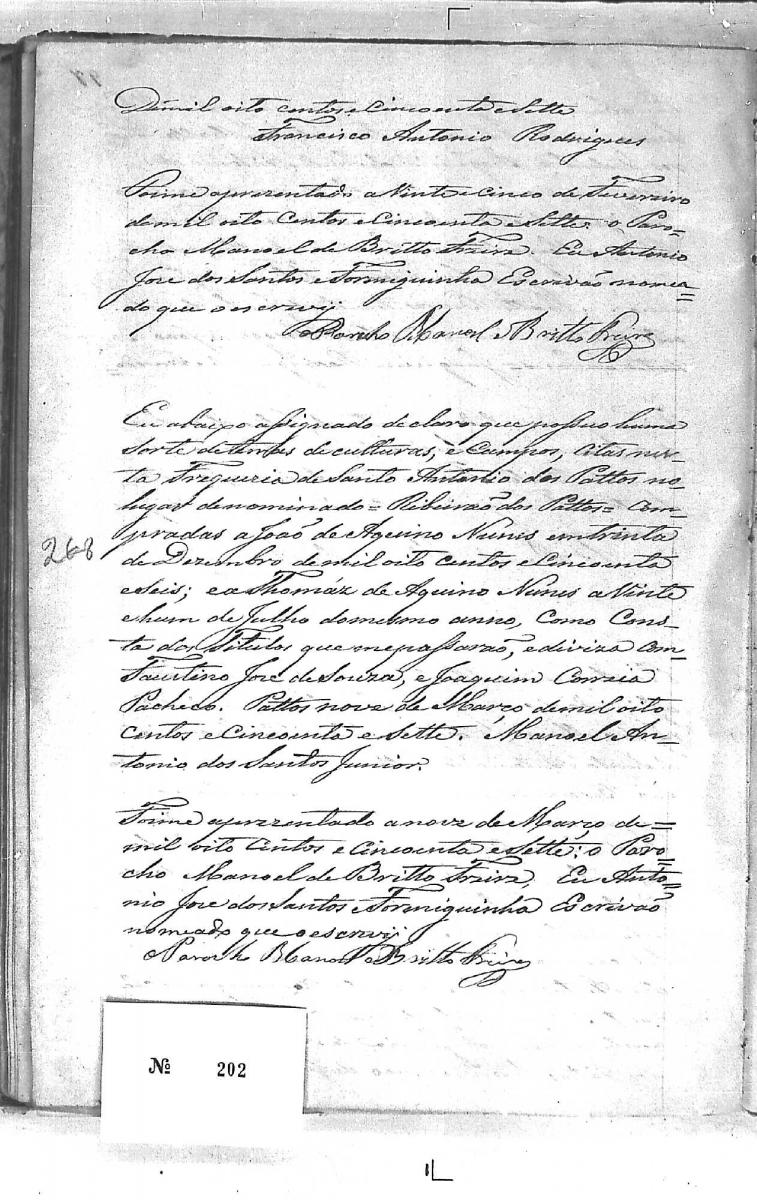 Demil oito centos e Cincoenta e Sette
Francisco Antonio Rodrigues
Foime aprezentado a Vinte e cinco de Fevereiro
demil oito Centos e Cincoenta e Sette o Paro=
cho Manoel de Britto Freire. Eu Antonio
Jose dos Santos e Formiguinha Escrivão nomea=
do que o escrevij
O Parocho Manoel de Britto Freire
Eu abaixo assignado declaro que possuo huma
sorte de terras de culturas, e Campos, citas nes-
ta Freguezia de Santo Antonio dos Pattos no
lugar denominado = Ribeirão dos Pattos = Com-
pradas a João de Aquino Nunes em trinta
de Dezembro de mil oito centos e Cincoenta
e seis; e a Thomáz de Aquino Nunes a Vinte
e hum de Julho do mesmo anno, como Cons-
ta dos Titulos que me passarão, e diviza com
Faustino Jose de Souza, e Joaquim Correia
Pacheco. Pattos nove de Março de mil oito
Centos e Cincoenta e Sette. Manoel An-
tonio dos Santos Junior.
268
Foime aprezentado a nove de Março de=
mil oito Centos e Cincoenta e Sette: o Paro=
cho Manoel de Britto Freire, Eu Anto=
nio Jose dos Santos e Formiguinha Escrivão
nomeado que o escrevij
O Parocho Manoel de Britto Freire
Nº 202